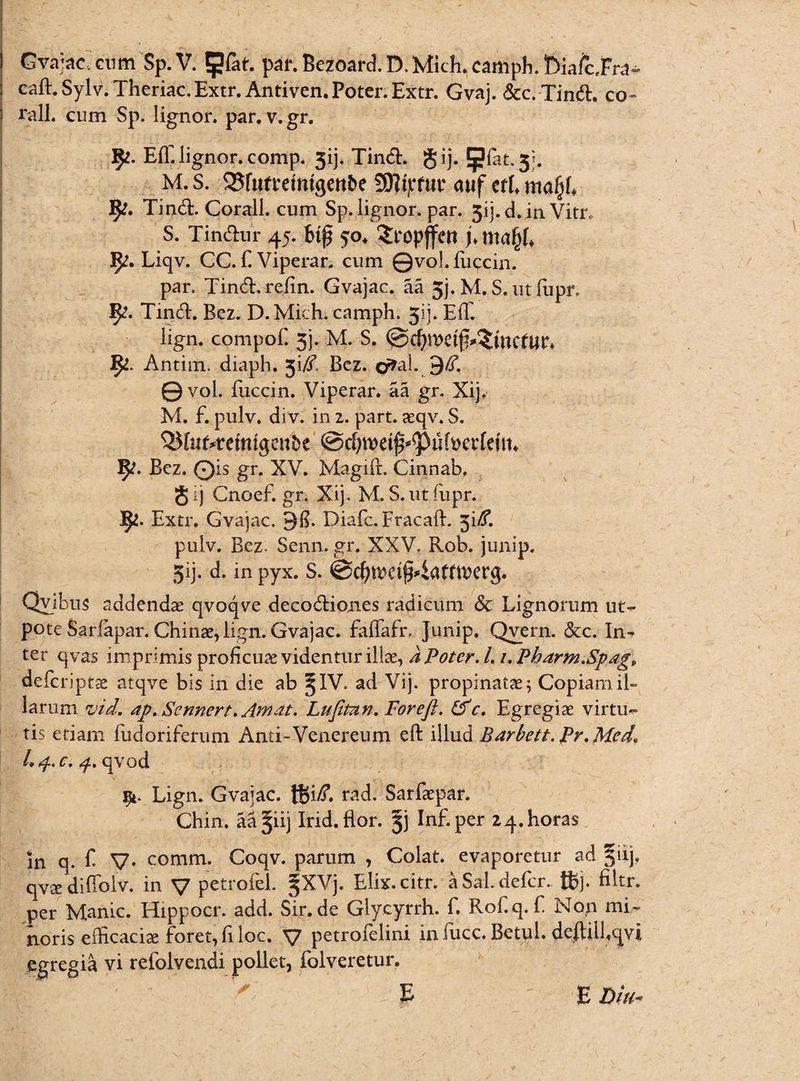 Gvajac. cum Sp. V. ꝑſat. par. Bezoard. D. Mich. camph. Diaſc. Fra-
caſt. Sylv. Theriac. Extr. Antiven. Poter. Extr. Gvaj. &c. Tinct. co-
rall. cum Sp. lignor. par. v. gr.
℞. Eſſ. lignor. comp. ʒij. Tinct. ☿ij. ꝑſat. ʒj.
M. S. Blutreinigende Mixtur auf etl. mahl.
℞. Tinct. Corall. cum Sp. lignor. par. ʒij. d. in Vitr.
S. Tinctur 45. biß 50. Tropffen j. mahl.
℞. Liqv. CC. ſ. Viperar. cum 🜔vol. ſuccin.
par. Tinct. reſin. Gvajac. āā ʒj. M. S. ut ſupr.
℞. Tinct. Bez. D. Mich. camph. ʒij. Eſſ.
lign. compoſ. ʒj. M. S. Schweiß-Tinctur.
℞. Antim. diaph. ʒiß. Bez. ♂al. ℈ß.
🜔 vol. ſuccin. Viperar. āā gr. Xij.
M. f. pulv. div. in 2. part. æqv. S.
Blut-reinigende Schweiß-Pülverlein.
℞. Bez. ☉is gr. XV. Magiſt. Cinnab.
☿ij Cnoef. gr. Xij. M. S. ut ſupr.
℞. Extr. Gvajac. ℈ß. Diaſc. Fracaſt. ʒiß.
pulv. Bez. Senn. gr. XXV. Rob. junip.
ʒij. d. in pyx. S. Schweiß-Lattwerg.
Qvibus addendæ qvoqve decoctiones radicum & Lignorum ut-
pote Sarſapar. Chinæ, lign. Gvajac. ſaſſafr. Junip. Qvern. &c. In-
ter qvas imprimis proficuæ videntur illæ, à Poter. l. 1. Pharm. Spag.
deſcriptæ atqve bis in die ab ℥IV. ad Vij. propinatæ; Copiam il-
larum vid. ap. Sennert. Amat. Luſitan. Foreſt. &c. Egregiæ virtu-
tis etiam ſudoriferum Anti-Venereum eſt illud Barbett. Pr. Med.
l. 4. c. 4. qvod
℞. Lign. Gvajac. ℔iß. rad. Sarſæpar.
Chin. āā ℥iij Irid. flor. ℥j Inf. per 24. horas
in q. ſ. 🜄. comm. Coqv. parum , Colat. evaporetur ad ℥iij.
qvæ diſſolv. in 🜄 petroſel. ℥XVj. Elix. citr. à Sal. deſcr. ℔j. filtr.
per Manic. Hippocr. add. Sir. de Glycyrrh. f. Roſ. q. ſ. Non mi-
noris efficaciæ foret, ſi loc. 🜄 petroſelini in ſucc. Betul. deſtill. qvi
egregiâ vi reſolvendi pollet, ſolveretur.
E E Diu-